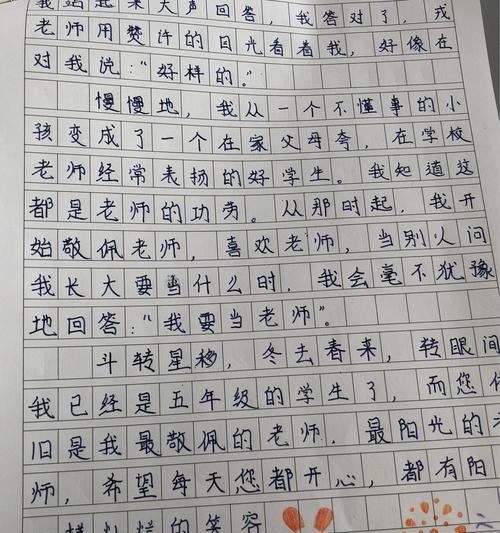 我站起来大声回答，我答对了，戎
老师用赞许的目光看着我，好像在
对我说：“好样的。”
慢慢地，我从一个不懂事的小
孩变成了一个在家父母夸，在学校
老师经常表扬的好学生。我知道这
都是老师的功劳。从那时起，我开
始敬佩老师，喜欢老师，当别人问
我长大要当什么时，我会毫不犹豫
地回答：“我要当老师”。
斗转星移，冬去春来，转眼间
我已经是五年级的学生了，而您依
旧是我最敬佩的老师．最阳光的老
师，希望每天您都开心，都有阳
灿烂的笑容